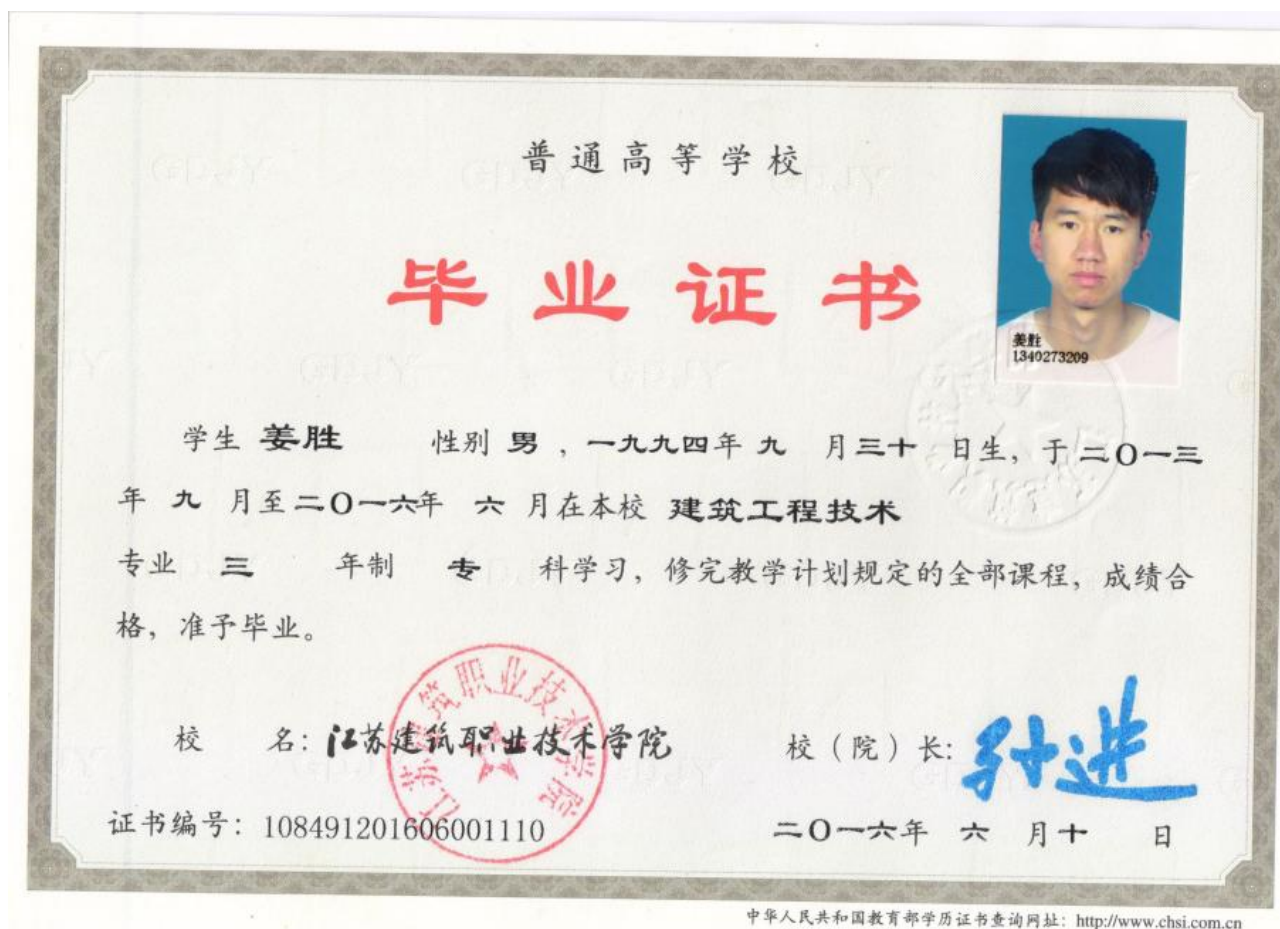 普通高等学校
毕业证书
姜胜
1340273209
学生 姜胜 性别 男，一九九四年 九 月三十 日生，于二〇一三
年 九 月至二〇一六年 六 月在本校 建筑工程技术
专业 三 年制 专 科学习，修完教学计划规定的全部课程，成绩合
格，准予毕业。
江苏建筑职业技术学院
校 名：江苏建筑职业技术学院 校（院）长：
证书编号：108491201606001110 二〇一六年 六 月十 日
中华人民共和国教育部学历证书查询网址：http://www.chsi.com.cn